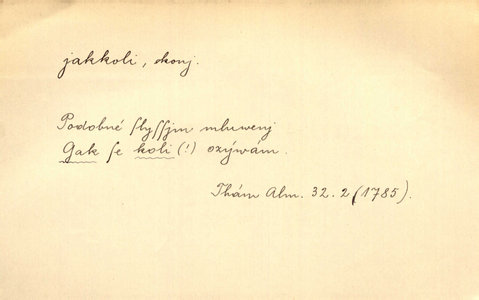 jakkoli, konj.
Podobné ſlyſſjm mluwenj
Gak ſe koli (!) ozýwám.
Thám Alm. 32. 2 (1785).